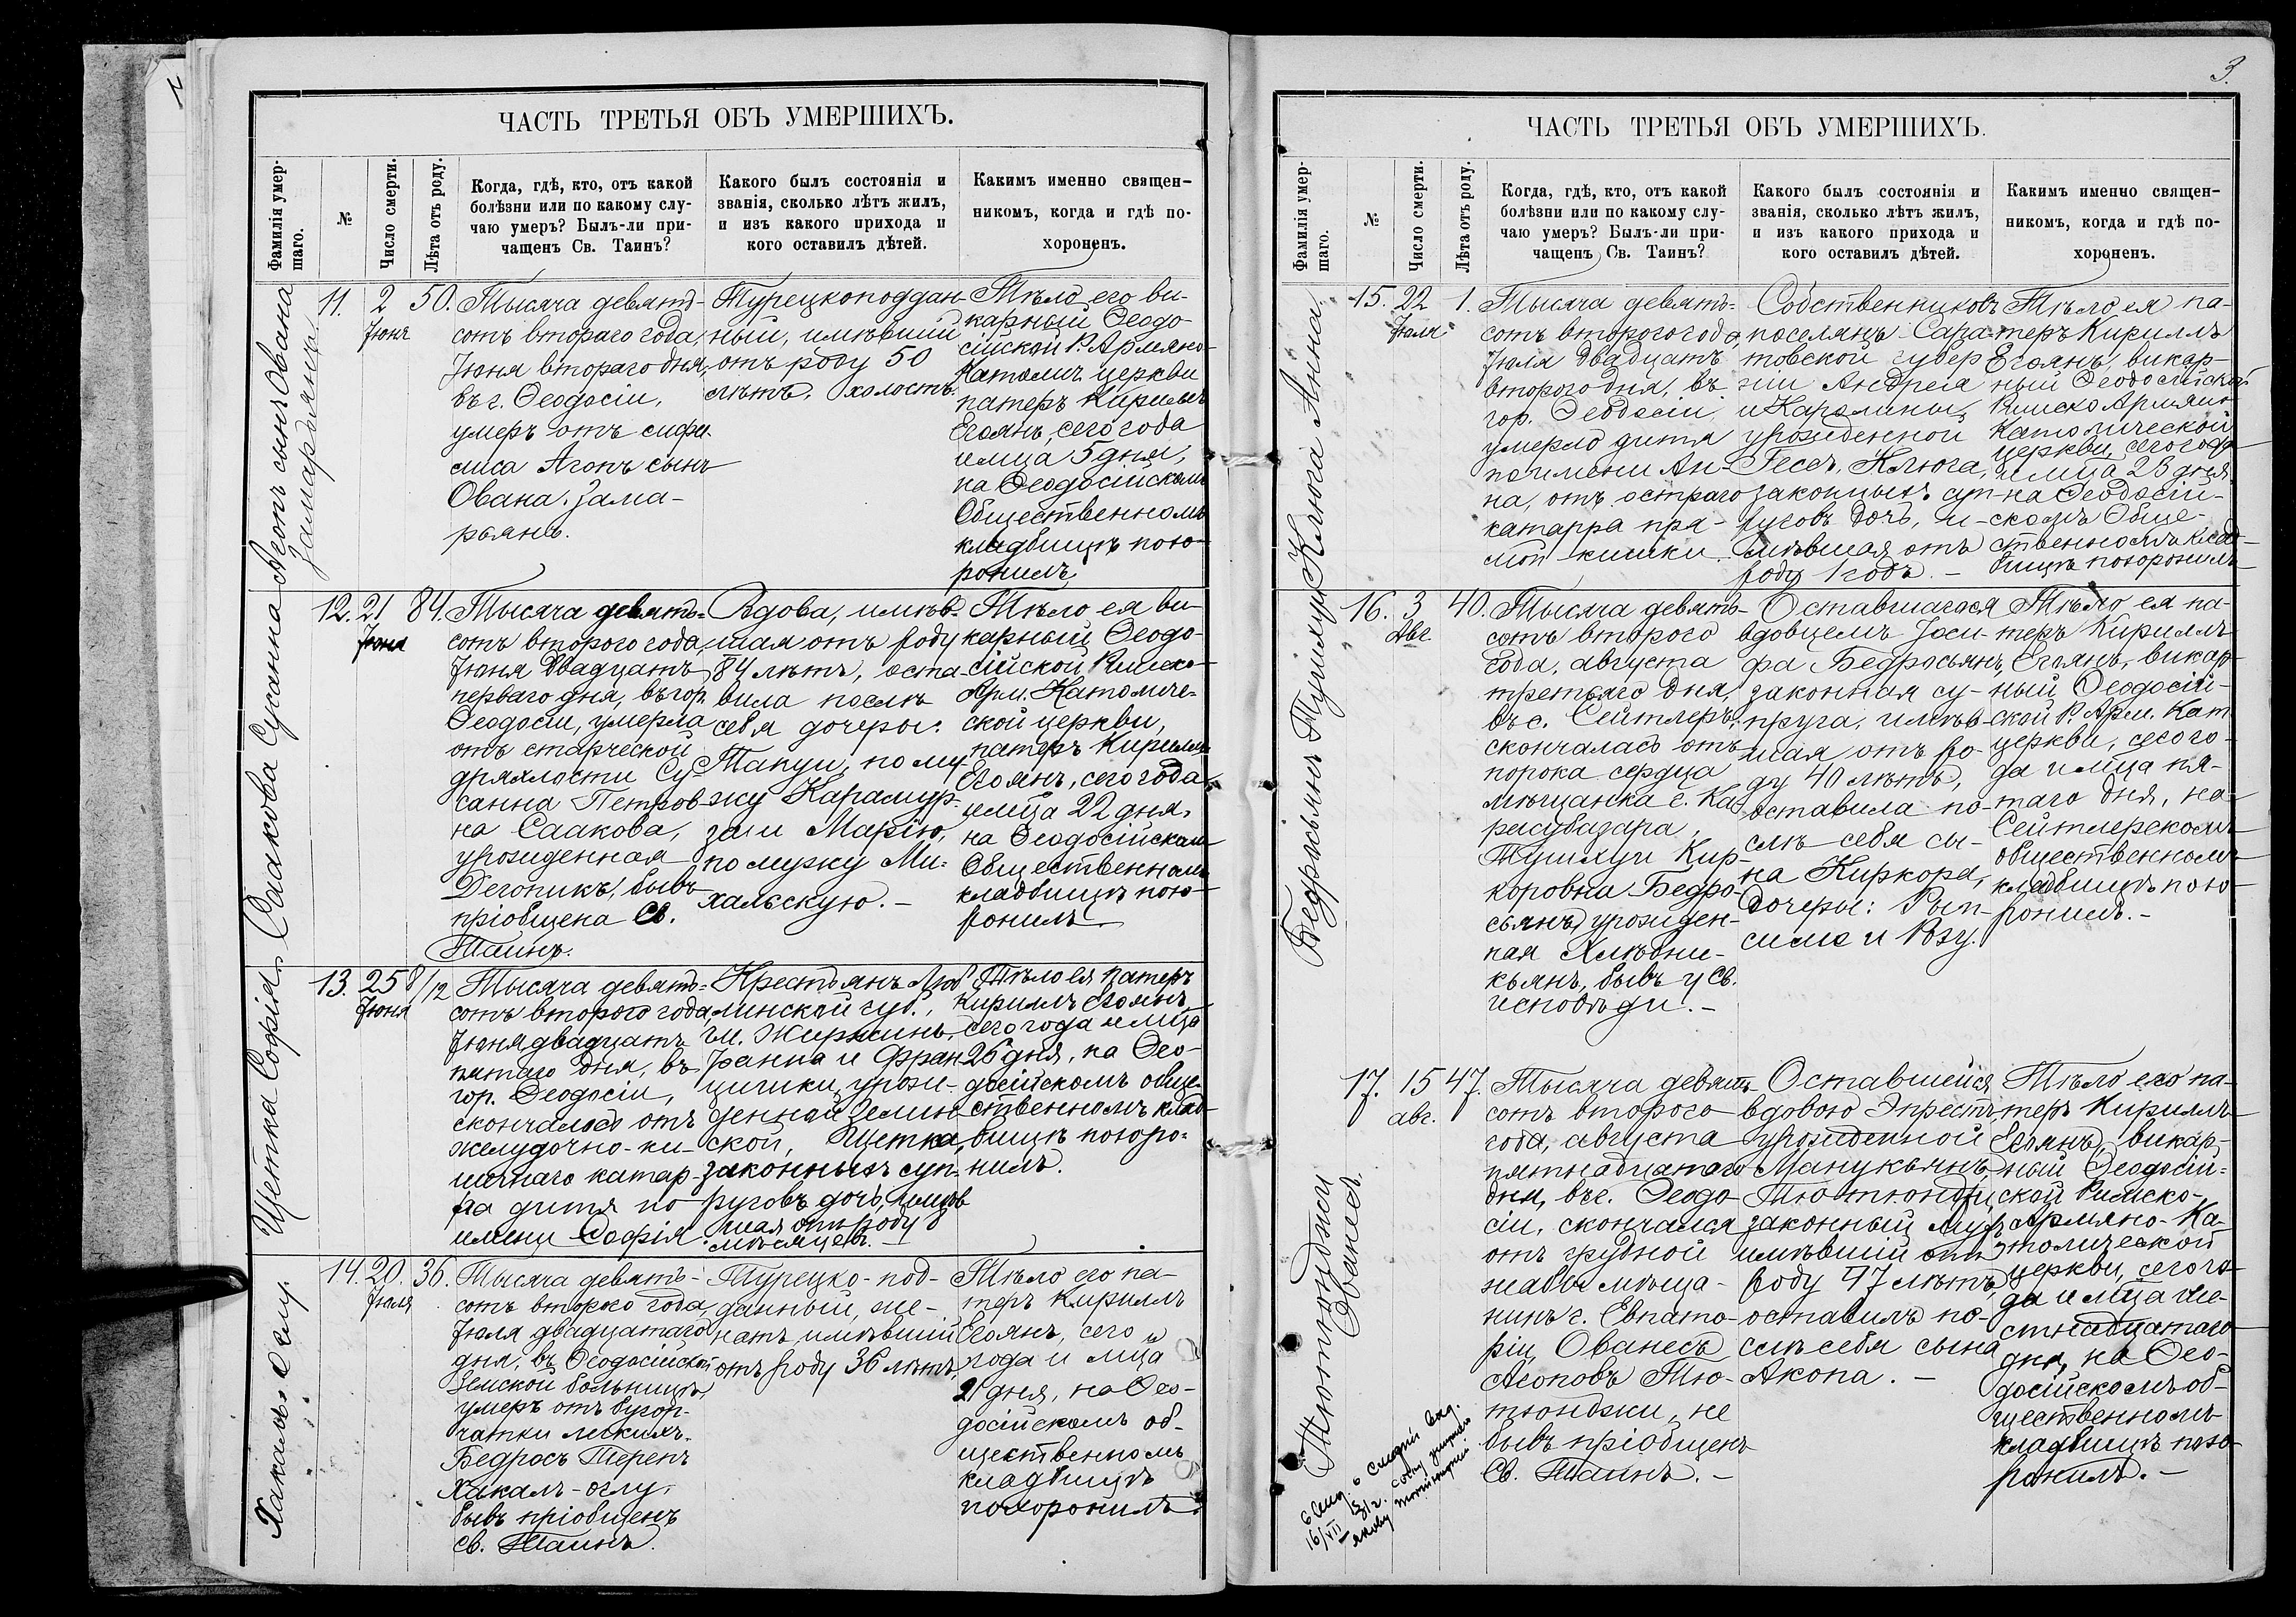 ЧАСТЬ ТРЕТЬЯ ОБЪ УМЕРШИХЪ.
Фамилія умер-
шаго.
№
Число смерти.
Лѣта отъ роду.
Когда, гдѣ, кто, отъ какой
болѣзни или по какому слу-
чаю умеръ? Былъ-ли при-
чащенъ Св. Таинъ?
Какого былъ состоянія и
званія, сколько лѣтъ жилъ,
и изъ какого прихода и
кого оставилъ дѣтей.
Какимъ именно священ-
никомъ, когда и гдѣ по-
хороненъ.
Агопъ сынъ Ована
Замарьянъ
11.
2
Іюня
50.
Тысяча девять-
сотъ втораго года,
Іюня втораго дня,
въ г. Ѳеодосіи,
умеръ отъ сифи-
лиса Агопъ сынъ
Ована Зама-
рьянъ.
Турецкоподдан-
ный, имѣвшій
отъ роду 50
лѣтъ, холостъ.
Тѣло его ви-
карный Ѳеодо-
сійской Р. Армяно-
Католич. церкви
патеръ Кириллъ
Егоянъ, сего года
и мца 5 дня,
на Ѳеодосійскомъ
Общественномъ
кладбищѣ похо-
ронилъ
Саакова Сусанна
12.
21
Іюня
84.
Тысяча девять-
сотъ второго года,
Іюня двадцать
перваго дня, въ гор.
Ѳеодосіи, умерла
отъ старческой
дряхлости Су-
санна Петров-
на Саакова,
урожденная
Дегоникъ, бывъ
пріобщена Св.
Таинъ.
Вдова, имѣв-
шая отъ роду
84 лѣтъ, оста-
вила послѣ
себя дочеры:
Такуи, по му-
жу Карамур-
зи и Марію,
по мужу Ми-
хальскую. –
Тѣло ея ви-
карный Ѳеодо-
сійской Римско-
Арм. Католиче-
ской церкви,
патеръ Кириллъ
Егоянъ, сего года
и мца 22 дня,
на Ѳеодосійскомъ
Общественномъ
кладбищѣ похо-
ронилъ
Щетка Софія
13.
25
Іюня
8/12
Тысяча девять-
сотъ второго года,
Іюня двадцать
пятаго дня, въ
гор. Ѳеодосіи,
скончалось отъ
желудочно-ки-
шечнаго катар-
ра дитя по
имени Софія.
Крестьянъ Люб-
линской губ.,
гм. Жиржинъ,
Іоанна и Фран-
цишки, урож-
денной Зелин-
ской, Щетка,
законныхъ суп-
руговъ дочь, имѣв-
шая отъ роду 8
мѣсяцевъ. –
Тѣло ея патеръ
Кириллъ Егоянъ,
сего года и мца
26 дня, на Ѳео-
досійскомъ обще-
ственномъ клад-
бищѣ похоро-
нилъ.
Хакалъ-Оглу.
14.
20.
Іюля
36.
Тысяча девять-
сотъ второго года,
Іюля двадцатаго
дня, въ Ѳеодосійской
Земской больницѣ
умеръ отъ бугор-
чатки легкихъ
Бедросъ Теренъ
Хакалъ-оглу,
бывъ пріобщенъ
Св. Таинъ.
Турецко-под-
данный, же-
натъ, имѣвшій
отъ роду 36 лѣтъ.
Тѣло его па-
теръ Кириллъ
Егоянъ, сего
года и мца
21 дня, на Ѳео-
досійскомъ об-
щественномъ
кладбищѣ
похоронилъ.
3.
ЧАСТЬ ТРЕТЬЯ ОБЪ УМЕРШИХЪ.
Фамилія умер-
шаго.
№
Число смерти.
Лѣта отъ роду.
Когда, гдѣ, кто, отъ какой
болѣзни или по какому слу-
чаю умеръ? Былъ-ли при-
чащенъ Св. Таинъ?
Какого былъ состоянія и
званія, сколько лѣтъ жилъ,
и изъ какого прихода и
кого оставилъ дѣтей.
Какимъ именно священ-
никомъ, когда и гдѣ по-
хороненъ.
Клюга Анна
15.
22
Іюля
1.
Тысяча девять-
сотъ второго года,
Іюля двадцать
второго дня, въ
гор. Ѳеодосіи,
умерло дитя
по имени Ан-
на, отъ остраго
катарра пря-
мой кишки.
Собственниковъ
поселянъ Сара-
товской губер-
ніи Андрея
и Каролины,
урожденной
Гесъ, Клюга,
законныхъ суп-
руговъ дочь, и-
мѣвшая отъ
роду 1 годъ. –
Тѣло ея па-
теръ Кириллъ
Егоянъ, викар-
ный Ѳеодосійской
Римско Армяно
Католической
церкви, сего года
и мца 23 дня
на Ѳеодосій-
скомъ Обще-
ственномъ клад-
бищѣ похоронилъ
Бедросьянъ Тушхун
16.
3
Авг.
40.
Тысяча девять-
сотъ второго
года, августа
третьяго дня,
въ с. Сейтлеръ
скончалась отъ
порока сердца
мѣщанка г. Ка-
расубазара,
Тушхун Кир-
коровна Бедро-
сьянъ, урожден-
ная Хлѣбни-
кьянъ, бывъ у Св.
исповѣди. –
Оставшагося
вдовцемъ Іоси-
фа Бедросьянъ,
законная су-
пруга, имѣв-
шая отъ ро-
ду 40 лѣтъ,
оставила по-
слѣ себя сы-
на Киркора,
Дочеры: Рип-
симе и Розу.
Тѣло ея па-
теръ Кириллъ
Егоянъ, викар-
ный Ѳеодосій-
ской Р. Арм. Кат.
церкви, сего го-
да и мца пя-
таго дня, на
Сейтлерскомъ
общественномъ
кладбищѣ похо-
ронилъ. –
Тютюнджи
Ованесъ
17.
15
авг.
47.
Тысяча девять-
сотъ второго
года, августа
пятнадцатаго
дня, въ г. Ѳеодо-
сіи, скончался
отъ грудной
жабы мѣща-
нинъ г. Евпато-
ріи, Ованесъ
Агоповъ Тю-
тюнджи, не
бывъ пріобщенъ
Св. Таинъ. –
Оставшейся
вдовою Эпрестъ,
урожденной
Манукьянъ,
Тютюнджи,
законный мужъ,
имѣвшій отъ
роду 47 лѣтъ,
оставилъ по-
слѣ себя сына
Акопа. –
Тѣло его па-
теръ Кириллъ
Егоянъ, викар-
ный Ѳеодосій-
ской Римско-
армяно-Ка-
толической
церкви, сего го-
да и мца ше-
стнадцатаго
дня, на Ѳео-
досійскомъ об-
щественномъ
кладбищѣ похо-
ронилъ. –
о смерти выд.
16/VII 31 г. сыну умершаго
Якову Тютюнджи